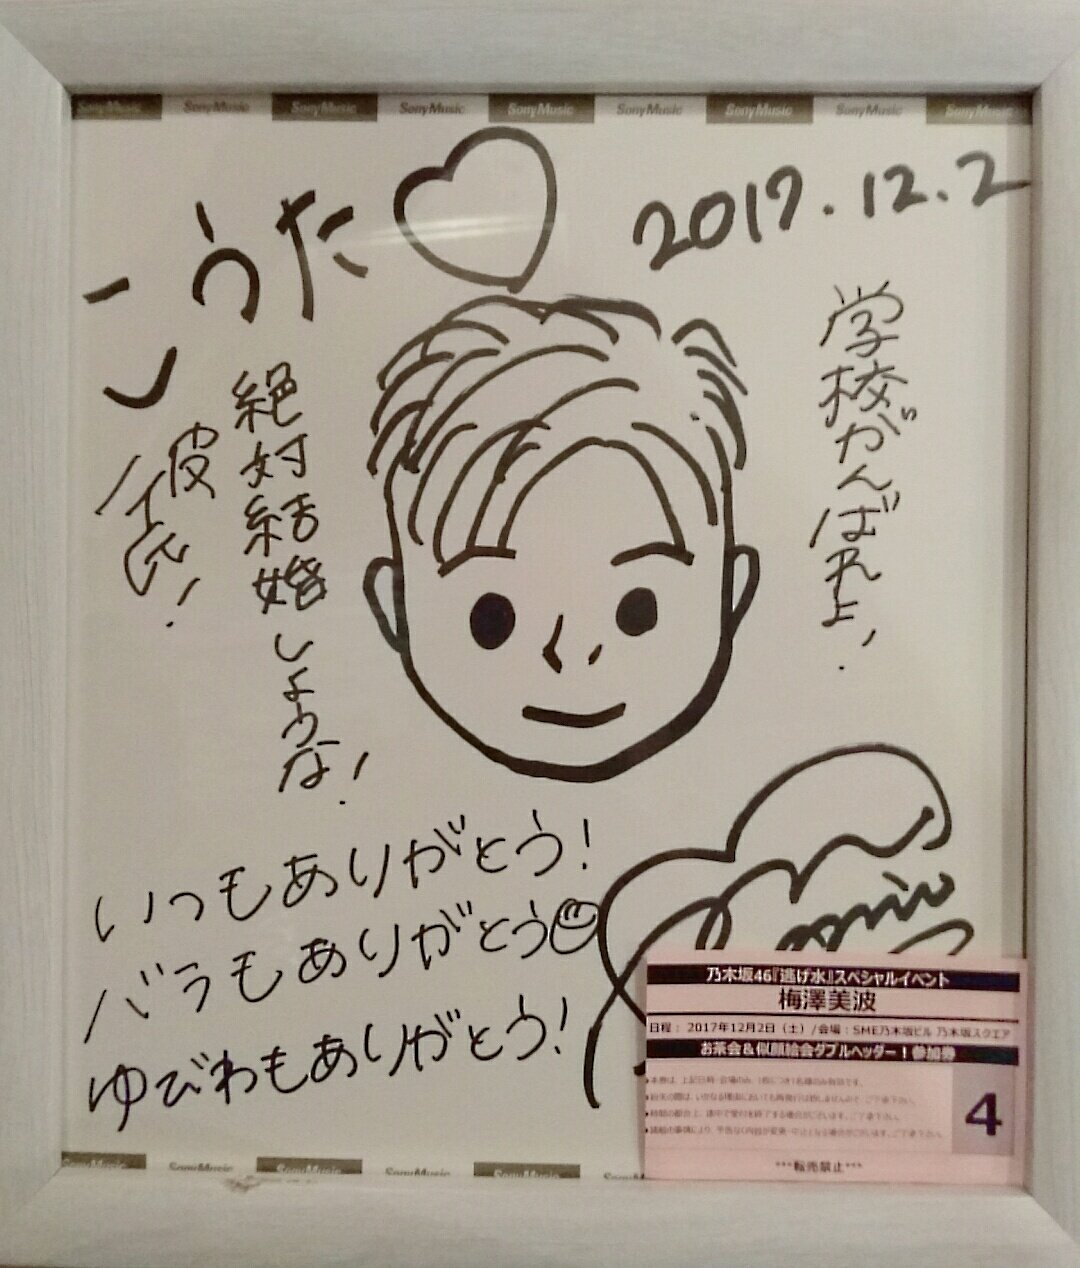 SonyMusic SonyMusic SonyMusic SonyMusic SonyMusic SonyMusic SonyMusic SonyMusic SonyMusic
こうた♡
2017.12.2
学校がんばれよ!
絶対結婚しような!
彼氏!
いつもありがとう!
バラもありがとう
ゆびわもありがとう!
乃木坂46『逃げ水』スペシャルイベント
梅澤美波
日程: 2017年12月2日(土)/会場:SME乃木坂ビル 乃木坂スクエア
お茶会&似顔絵会ダブルヘッダー!参加券
4
***転売禁止***
SonyMusic SonyMusic SonyMusic SonyMusic SonyMusic